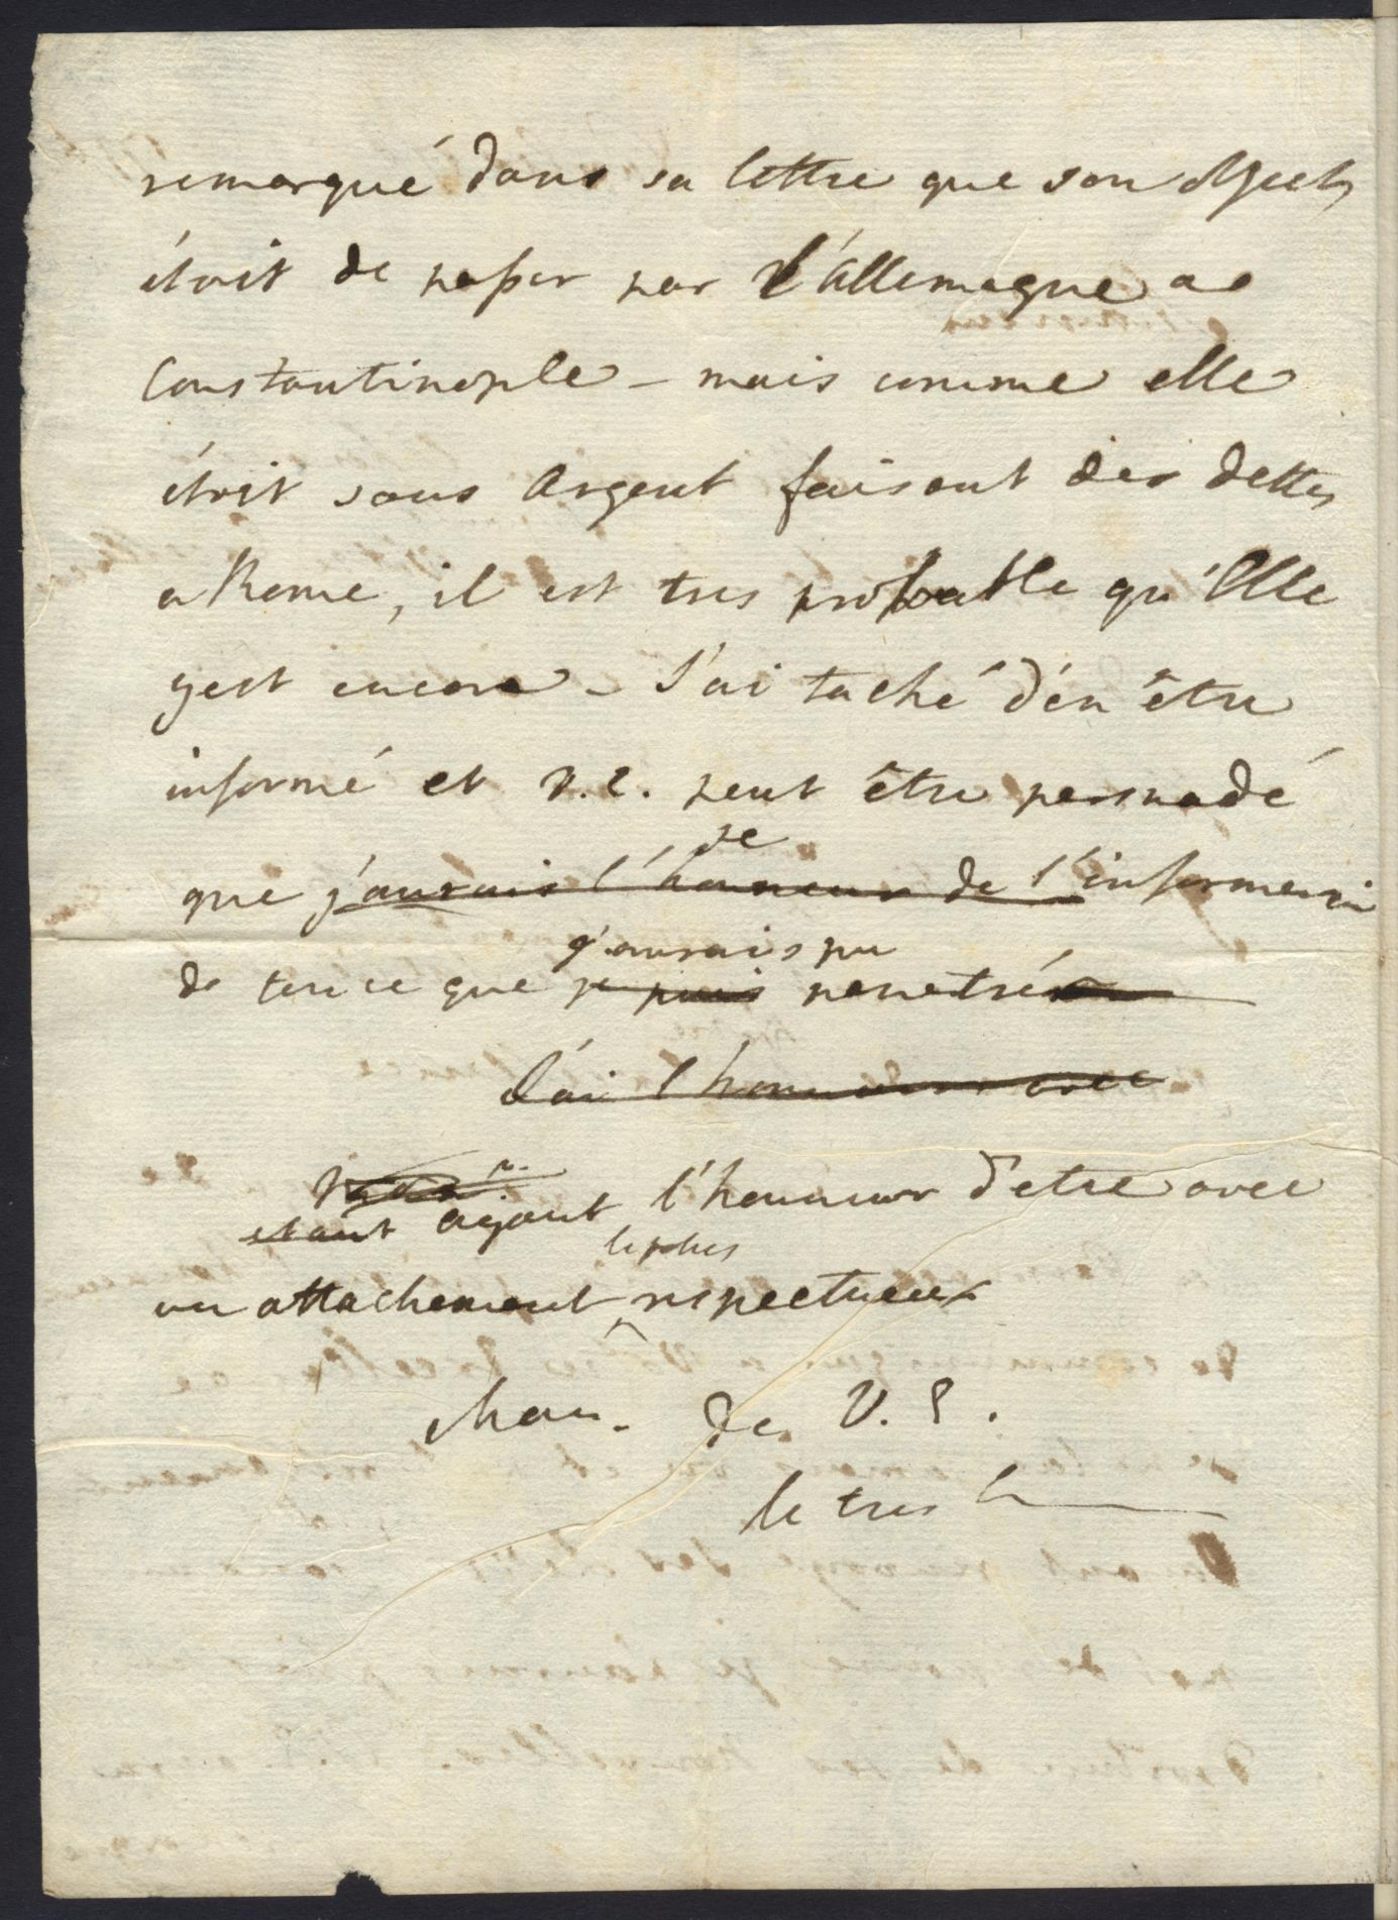 remarqué dans sa lettre que son objet
étoit de passer par l'Allemagne a
Constantinople – mais comme elle
étoit sans Argent faisant des dettes
a Rome, il est tres probable qu'Elle
y est encore – J'ai taché d'én être
informé et V. E. peut être persuadé
je
que j'aurais l'honneur de l'informerai
j'aurais pu
de tout ce que je puis penetré
J'ai l'honneur avec
etant ayant l'honneur d'etre avec
le plus
un attachement respectueux
Mon. de V. E.
le tres h